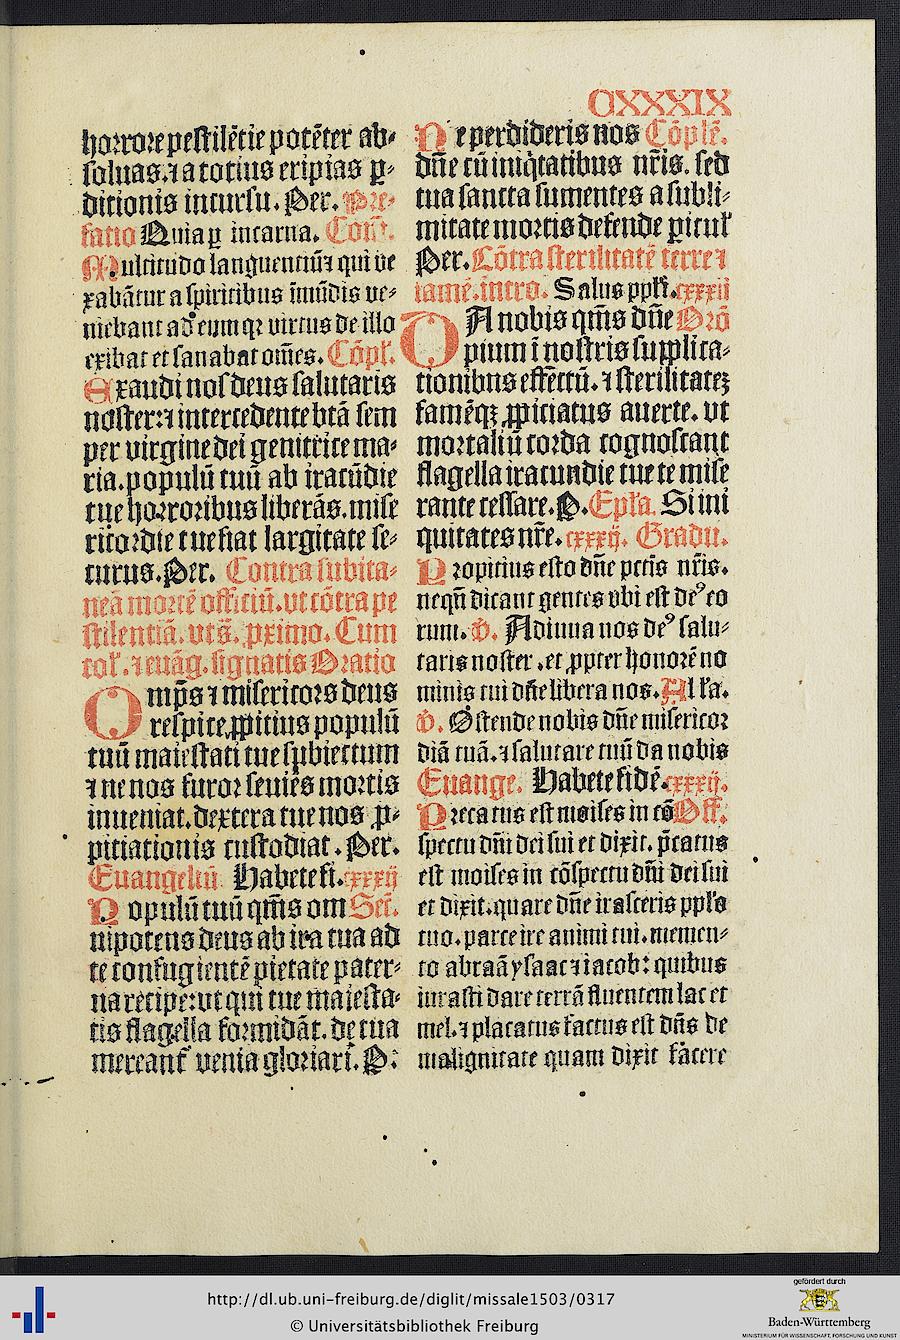 CXXXIX
horrore pestilētie potēter ab⸗
soluas. ⁊ a totius eripias ꝑ⸗
ditionis incursu. Per. Pre⸗
fatio Quia ꝑ incarna. Com̄.
Multitudo languentiū ⁊ qui ve
xabātur a spiritibus īmūdis ve⸗
niebant ad eum qꝛ virtus de illo
exibat et sanabat om̄es. Cōpl̄.
Exaudi nos deus salutaris
noster: ⁊ intercedente btā sem
per virgine dei genitrice ma⸗
ria. populū tuū ab iracūdie
tue horroribus liberās. mise
ricordie tue fiat largitate se⸗
curus. Per. Contra subita⸗
neā mortē officiū. vt cōtra pe
stilentiā. vt s̄. proximo. Cum
col̄. ⁊ euāg. signatis Oratio
Omp̄s ⁊ misericors deus
respice ꝓpitius populū
tuū maiestati tue subiectum
⁊ ne nos furor seuiēs mortis
inueniat. dextera tue nos ꝓ⸗
pitiationis custodiat. Per.
Euangeliū Habete fi. cxxxij
Populū tuū qm̄s om Secr̄.
nipotens deus ab ira tua ad
te confugientē pietate pater⸗
na recipe: vt qui tue maiesta⸗
tis flagella formidāt. de tua
mereant᷑ venia gloriari. P.
Ne perdideris nos Cōplē.
dn̄e cū iniq̇tatibus nr̄is. sed
tua sancta sumentes a subli⸗
mitate mortis defende ꝑicul̄
Per. Cōtra sterilitatē terre ⁊
famē. intro. Salus ppl̄i. cxxxij
DA nobis qm̄s dn̄e Orō
pium ī nostris supplica⸗
tionibus effectū. ⁊ sterilitateꝫ
famēqꝫ ꝓpiciatus auerte. vt
mortaliū corda cognoscant
flagella iracundie tue te mise
rante cessare. P. Epl̄a. Si ini
quitates nr̄e. cxxxij. Gradu.
Propitius esto dn̄e pctis nr̄is.
nequn̄ dicant gentes vbi est deꝰ eo
rum. v̄. Adiuua nos deꝰ salu⸗
taris noster. et ꝓpter honorē no
minis tui dn̄e libera nos. All'a.
v̄. Ostende nobis dn̄e misericor
diā tuā. ⁊ salutare tuū da nobis
Euange. Habete fidē. cxxxij.
Precatus est moises in cō Off.
spectu dn̄i dei sui et dixit. p̄catus
est moises in cōspectu dn̄i dei sui
et dixit. quare dn̄e irasceris ppl̄o
tuo. parce ire animi tui. memen⸗
to abraā ysaac ⁊ iacob: quibus
iurasti dare terrā fluentem lac et
mel. ⁊ placatus factus est dn̄s de
malignitate quam dixit facere
http://dl.ub.uni-freiburg.de/diglit/missale1503/0317
© Universitätsbibliothek Freiburg
gefördert durch
Baden-Württemberg
MINISTERIUM FÜR WISSENSCHAFT, FORSCHUNG UND KUNST